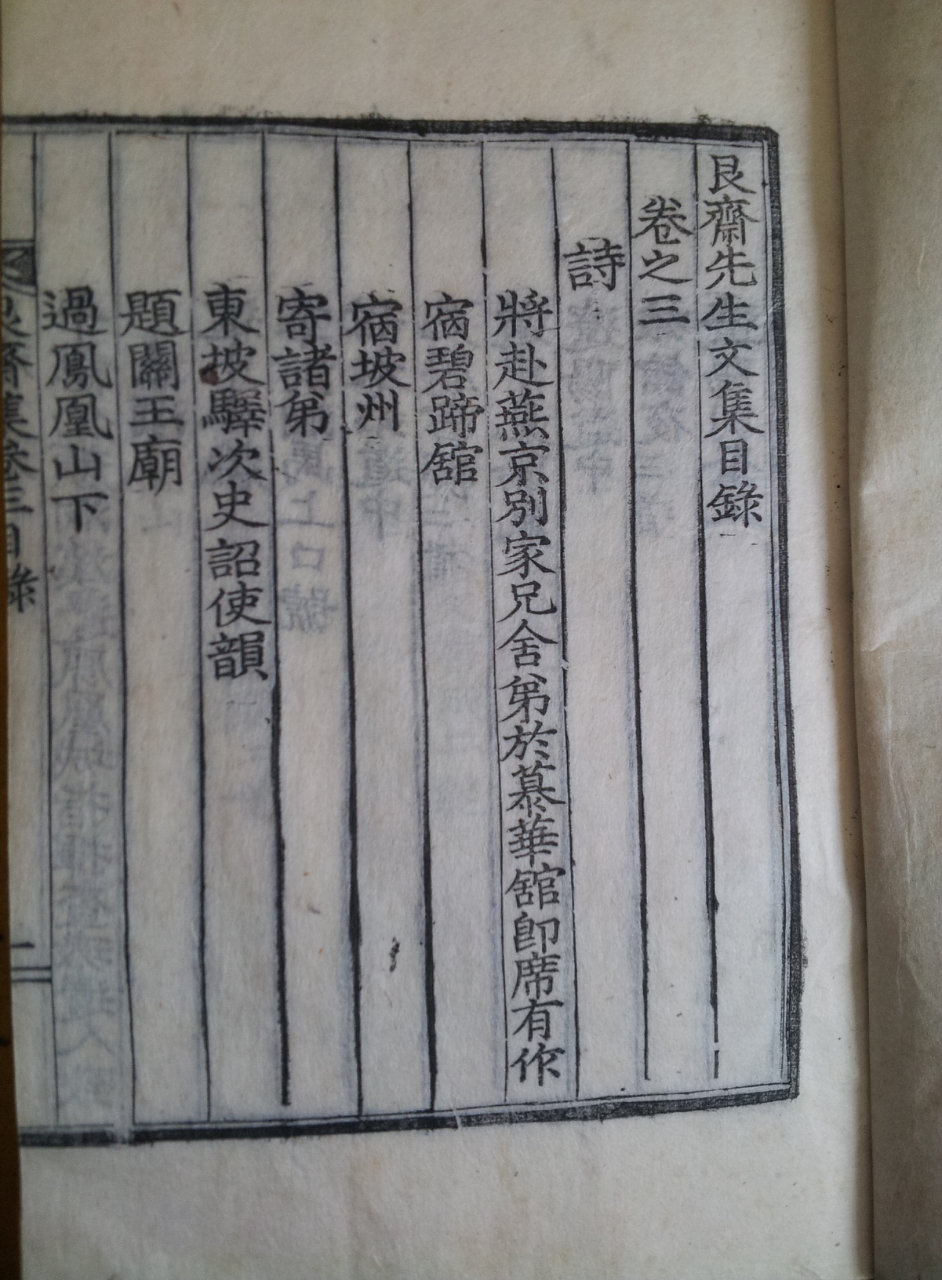 艮齋先生文集目錄
卷之三
詩
將赴燕京別家兄舍弟於慕華舘卽席有作
宿碧蹄舘
宿坡州
寄諸弟
東坡驛次史詔使韻
題關王廟
過鳳凰山下
艮齋集卷三目錄
一